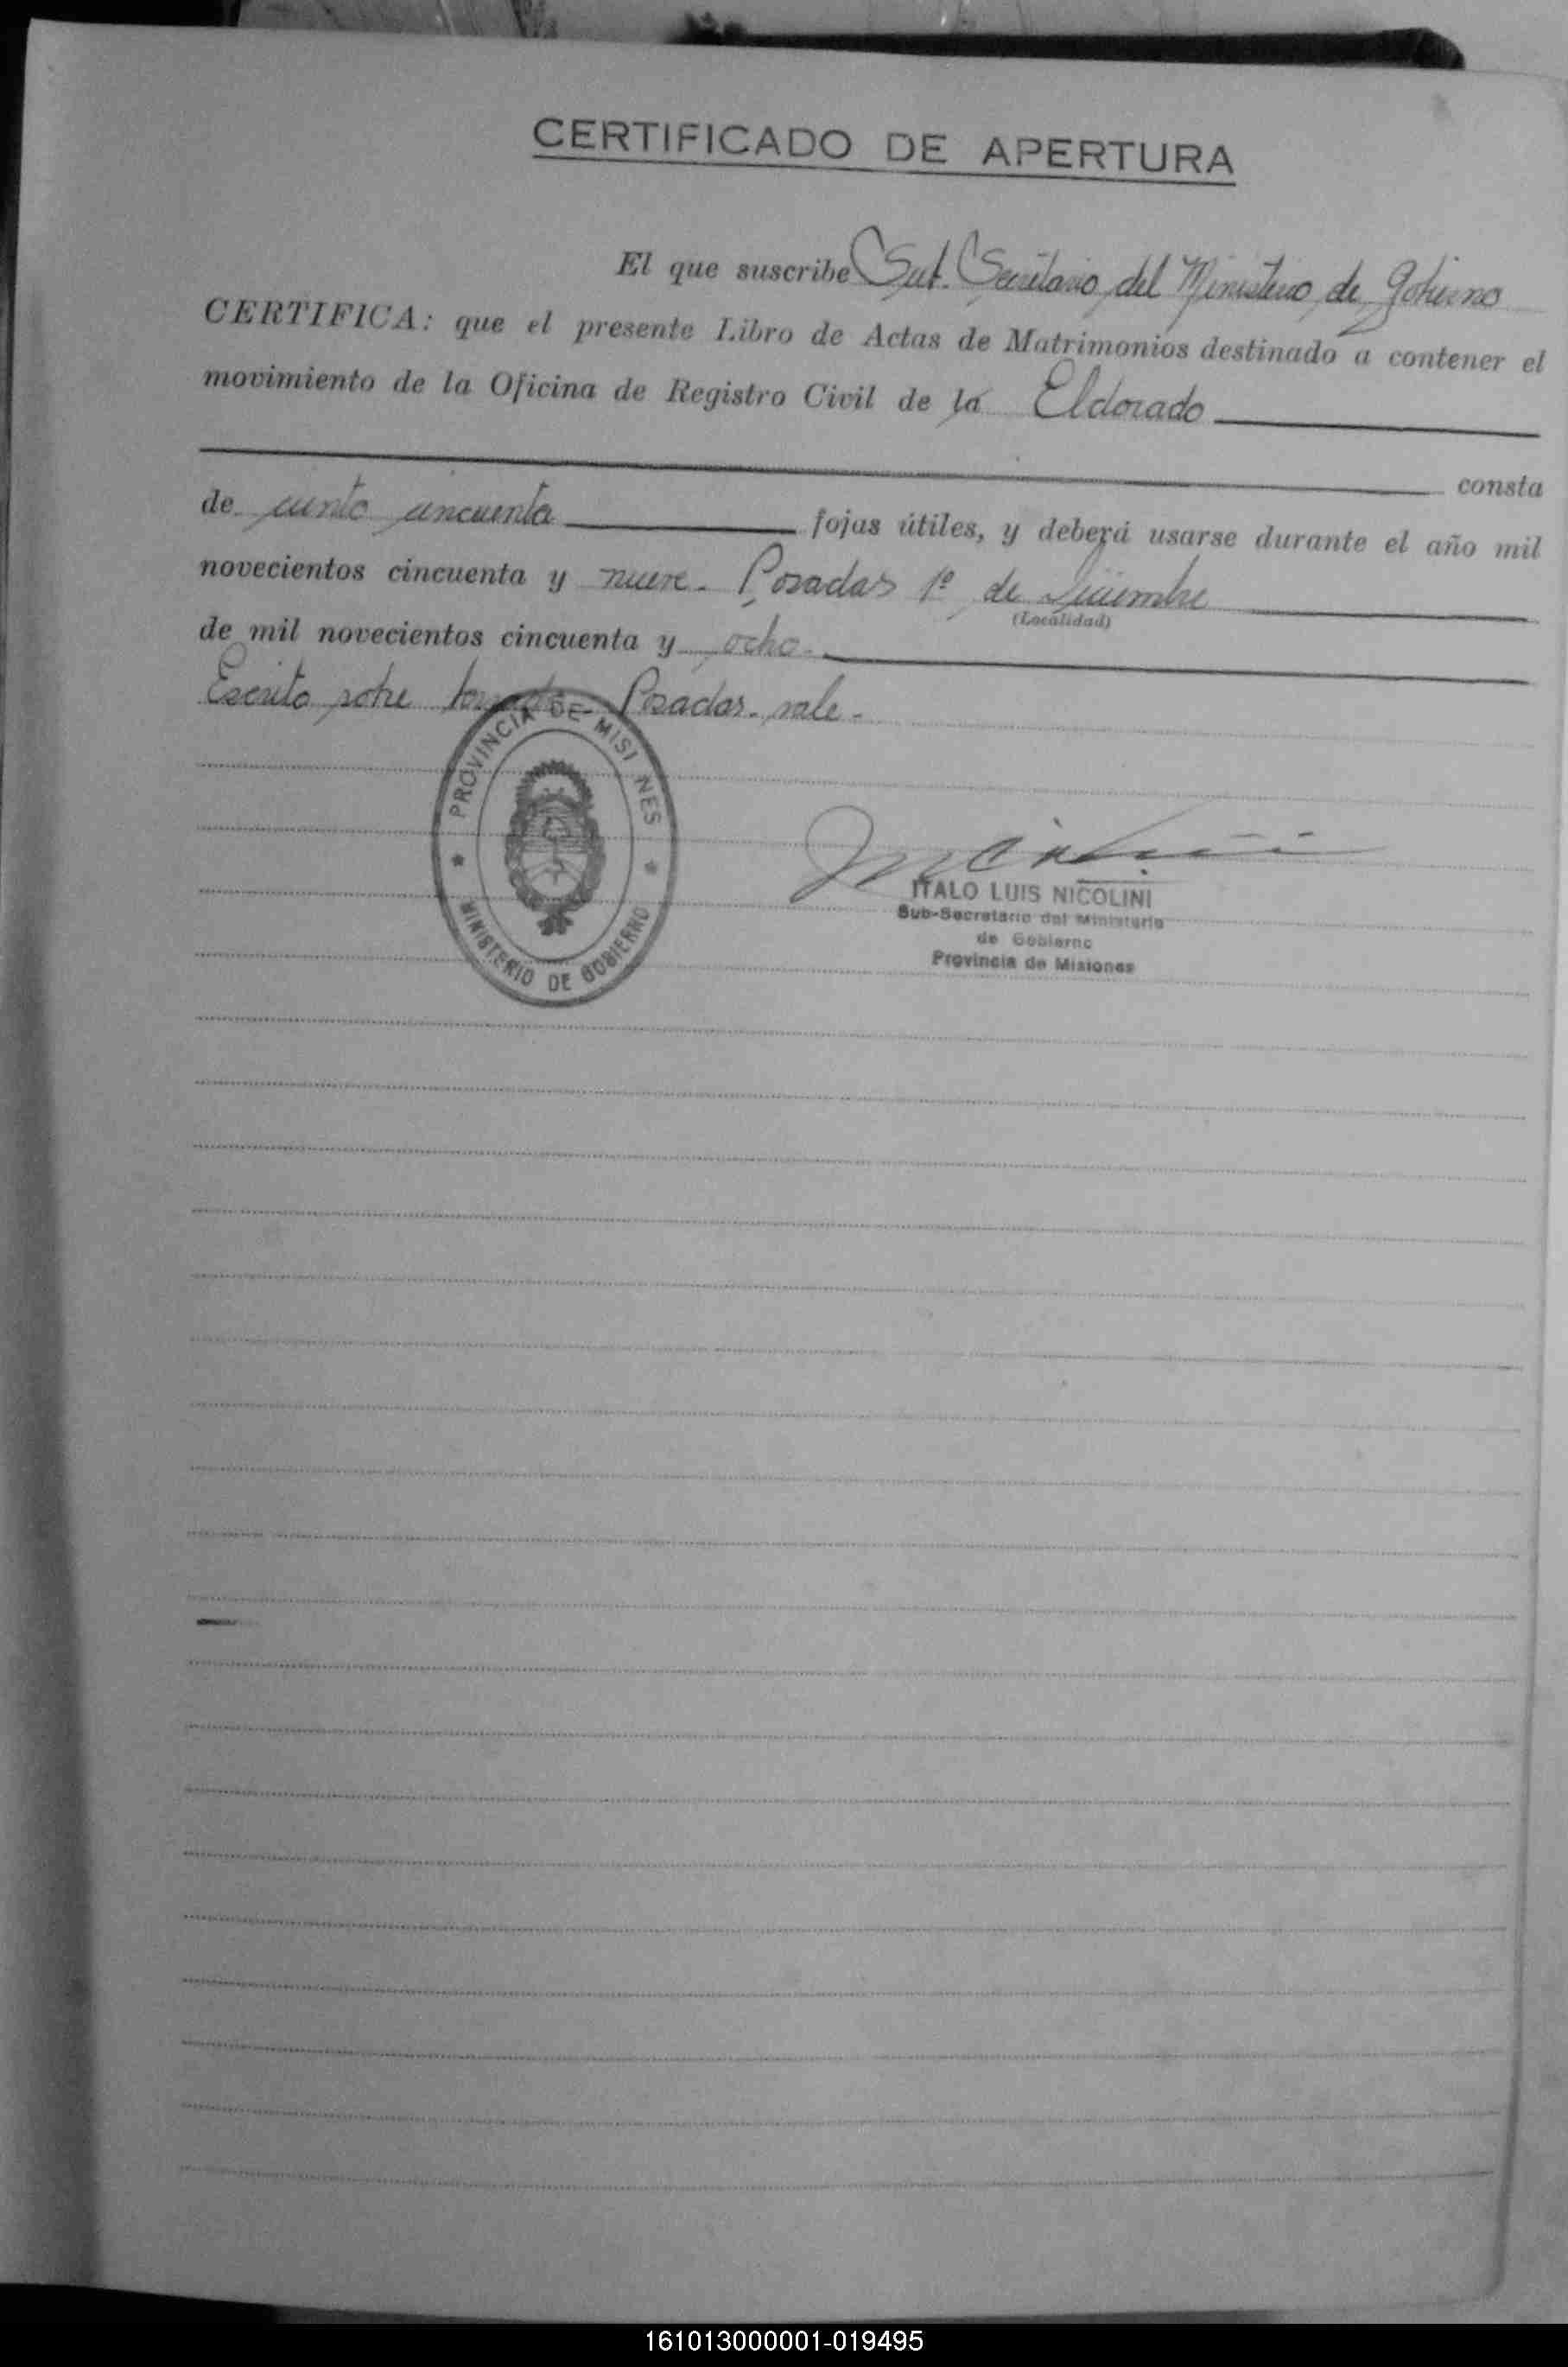 CERTIFICADO DE APERTURA
El que suscribe Sub. Secretario del Ministerio de Gobierno
CERTIFICA: que el presente Libro de Actas de Matrimonios destinado a contener el
movimiento de la Oficina de Registro Civil de la Eldorado
consta
de ciento cincuenta fojas útiles, y deberá usarse durante el año mil
novecientos cincuenta y nueve. Posadas 1º de Diciembre
(Localidad)
de mil novecientos cincuenta y ocho.
Escrito sobre Posadas. vale.
PROVINCIA DE MISI NES
MINISTERIO DE GOBIERNO
ITALO LUIS NICOLINI
Sub-Secretario del Ministerio
de Gobierno
Provincia de Misiones
161013000001-019495